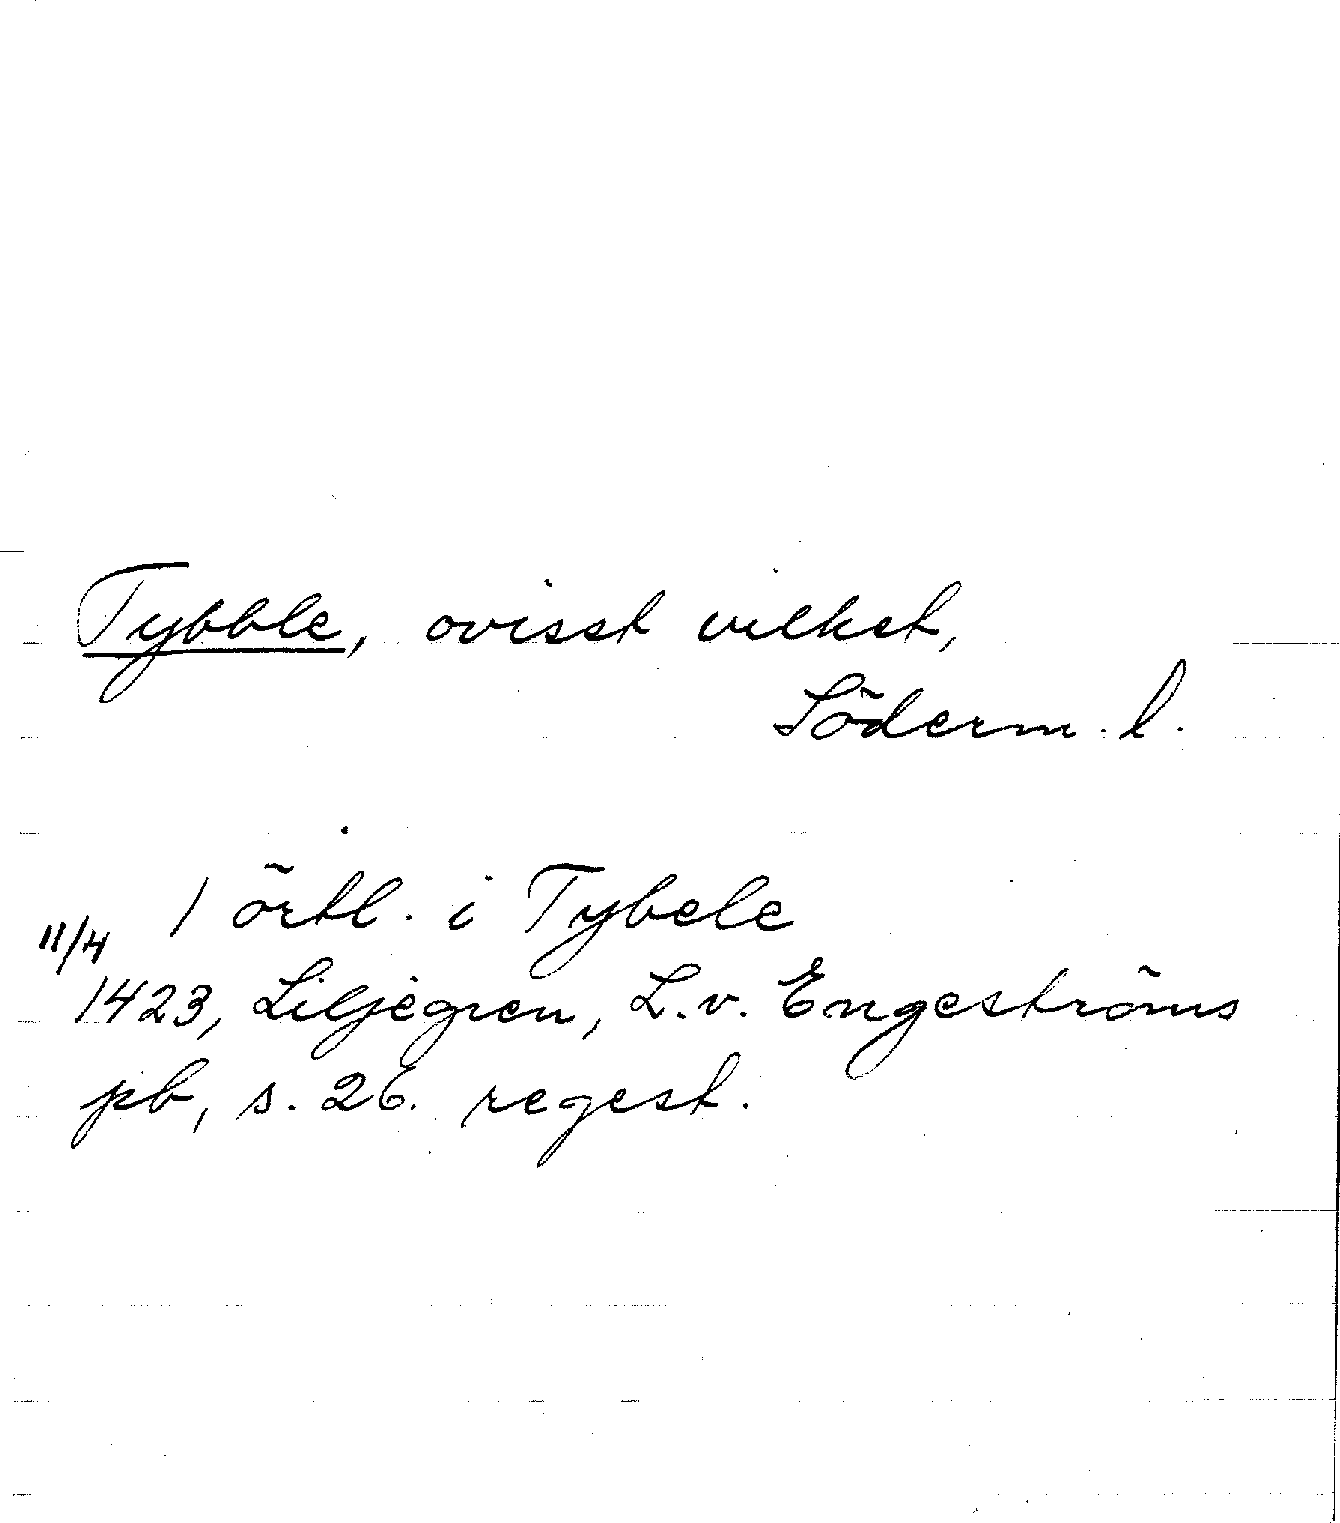 Tybble, ovisst vilket,
Söderm. l.
1 örtl. i Tybele
11/4
1423, Liljegren, L. v. Engeströms
pb, s. 26. regest.